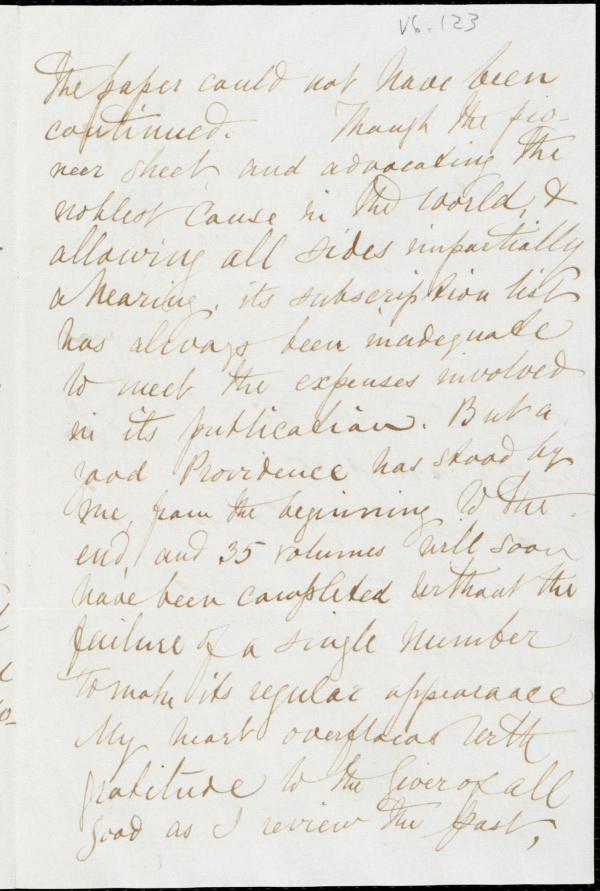 V6.123
the paper could not have been
continued. Though the pio-
neer sheet and advocating the
noblest cause in the world, &
allowing all sides impartially
a hearing, its subscription list
has always been inadequate
to meet the expenses involved
in its publication. But a
good Providence has stood by
me, from the beginning to the
end, and 35 volumes will soon
have been completed without the
failure of a single number
to make its regular appearance
My heart overflows with
gratitude to the Giver of all
good as I review the past,